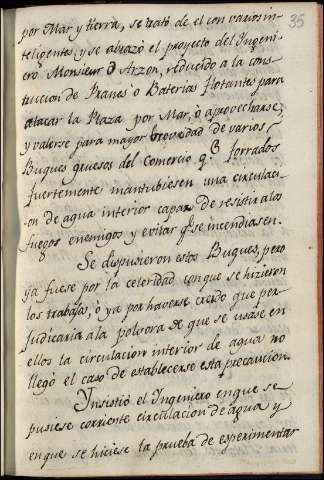 35
por Mar y tierra, se trató de el con varios in-
teligentes, y se abrazó el proyecto del Ingeni-
ero Monsieur D Arzon, reducido a la cons-
truccion de Pranes o Baterias flotantes para
atacar la Plaza por Mar, o aprovecharse,
y valerse para mayor brevedad de varios
Buques gruesos del Comercio q.e forrados
fuertemente mantubiesen una circulaci-
on de agua interior capaz de resistir a los
fuegos enemigos y evitar q.e se incendiasen.
Se dispusieron estos Buques, pero
ya fuese por la celeridad con que se hizieron
los trabajos, o ya por haverse creido que per-
Judicaria a la polvora de que se usase en
ellos la circulacion interior de agua no
llegó el caso de establecerse esta precaucion.
Ynsistió el Ingeniero en que se
pusiese corriente circulacion de agua y
en que se hiciese la prueba de esperimentar